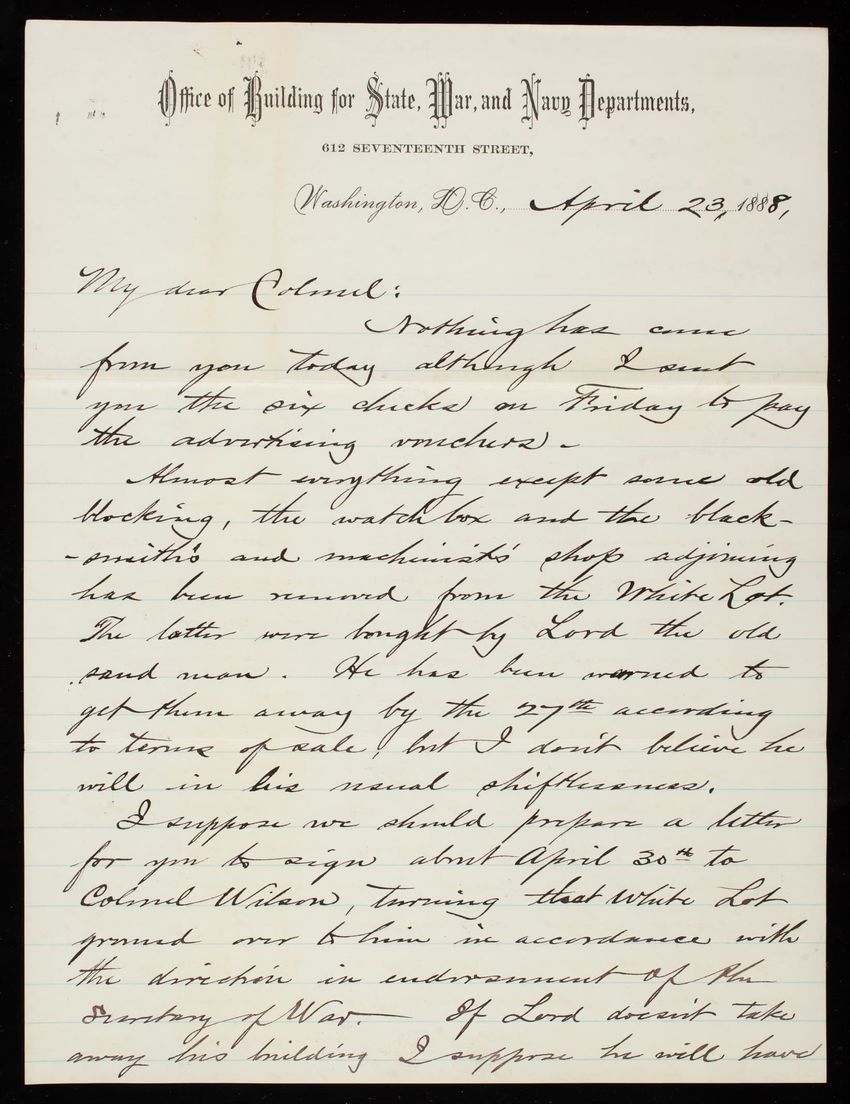 Office of Building for State, War, and Navy Departments,
612 SEVENTEENTH STREET,
Washington, D.C., April 23, 1888,
My dear Colonel:
Nothing has come
from you today although I sent
you the six checks on Friday to pay
the advertising vouchers.-
Almost everything except some old
blocking, the watch box and the black-
-smith's and machinist's shop adjoining
has been removed from the White Lot.
The latter were bought by Lord the old
sand man. He has been warned to
get them away by the 27th according
to terms of sale, but I don't believe he
will in his usual shiftlessness.
I suppose we should prepare a letter
for you to sign about April 30th to
Colonel Wilson, turning that White Lot
ground over to him in accordance with
the direction in endorsement of the
Secretary of War.- If Lord doesn't take
away his building I suppose he will have